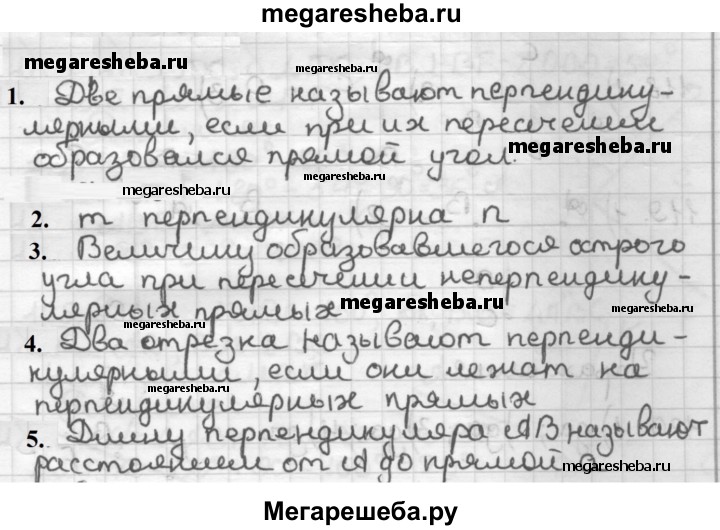 megaresheba.ru
megaresheba.ru
megaresheba.ru
1. Две прямые называют перпендику-
лярными, если при их пересечении
образовался прямой угол.
megaresheba.ru
megaresheba.ru
2. m перпендикулярна n
3. Величину образовавшегося острого
угла при пересечении неперпендику-
лярных прямых
megaresheba.ru
megaresheba.ru
megaresheba.ru
4. Два отрезка называют перпенди-
кулярными, если они лежат на
megaresheba.ru
перпендикулярных прямых
5. Длину перпендикуляра AB называют
расстоянием от A до прямой
megaresheba.ru
Мегарешеба.ру